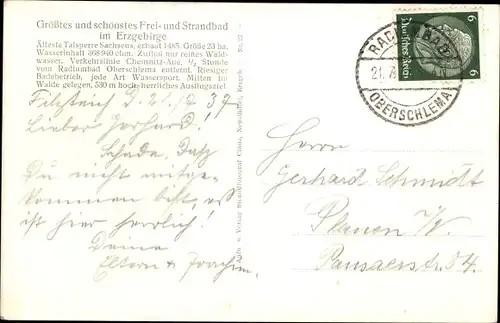 Größtes und schönstes Frei- und Strandbad
im Erzgebirge
Älteste Talsperre Sachsens, erbaut 1485. Größe 23 ha.
Wasserinhalt 868940 cbm. Zufluß nur reines Wald-
wasser. Verkehrslinie Chemnitz-Aue, ½ Stunde
vom Radiumbad Oberschlema entfernt. Riesiger
Badebetrieb, jede Art Wassersport. Mitten im
Walde gelegen, 530 m hoch, herrliches Ausflugsziel
Filzteich d. 21/7 37
Lieber Gerhard!
Schade, daß
Du nicht mitge-
kommen bist, es
ist hier herrlich!
Deine
Eltern + Joachim.
Deutsches Reich
6 6
RADIUMBAD
21.7
OBERSCHLEMA
Herrn
Gerhard Schmidt
Plauen i/V.
Pausaerstr. 84.